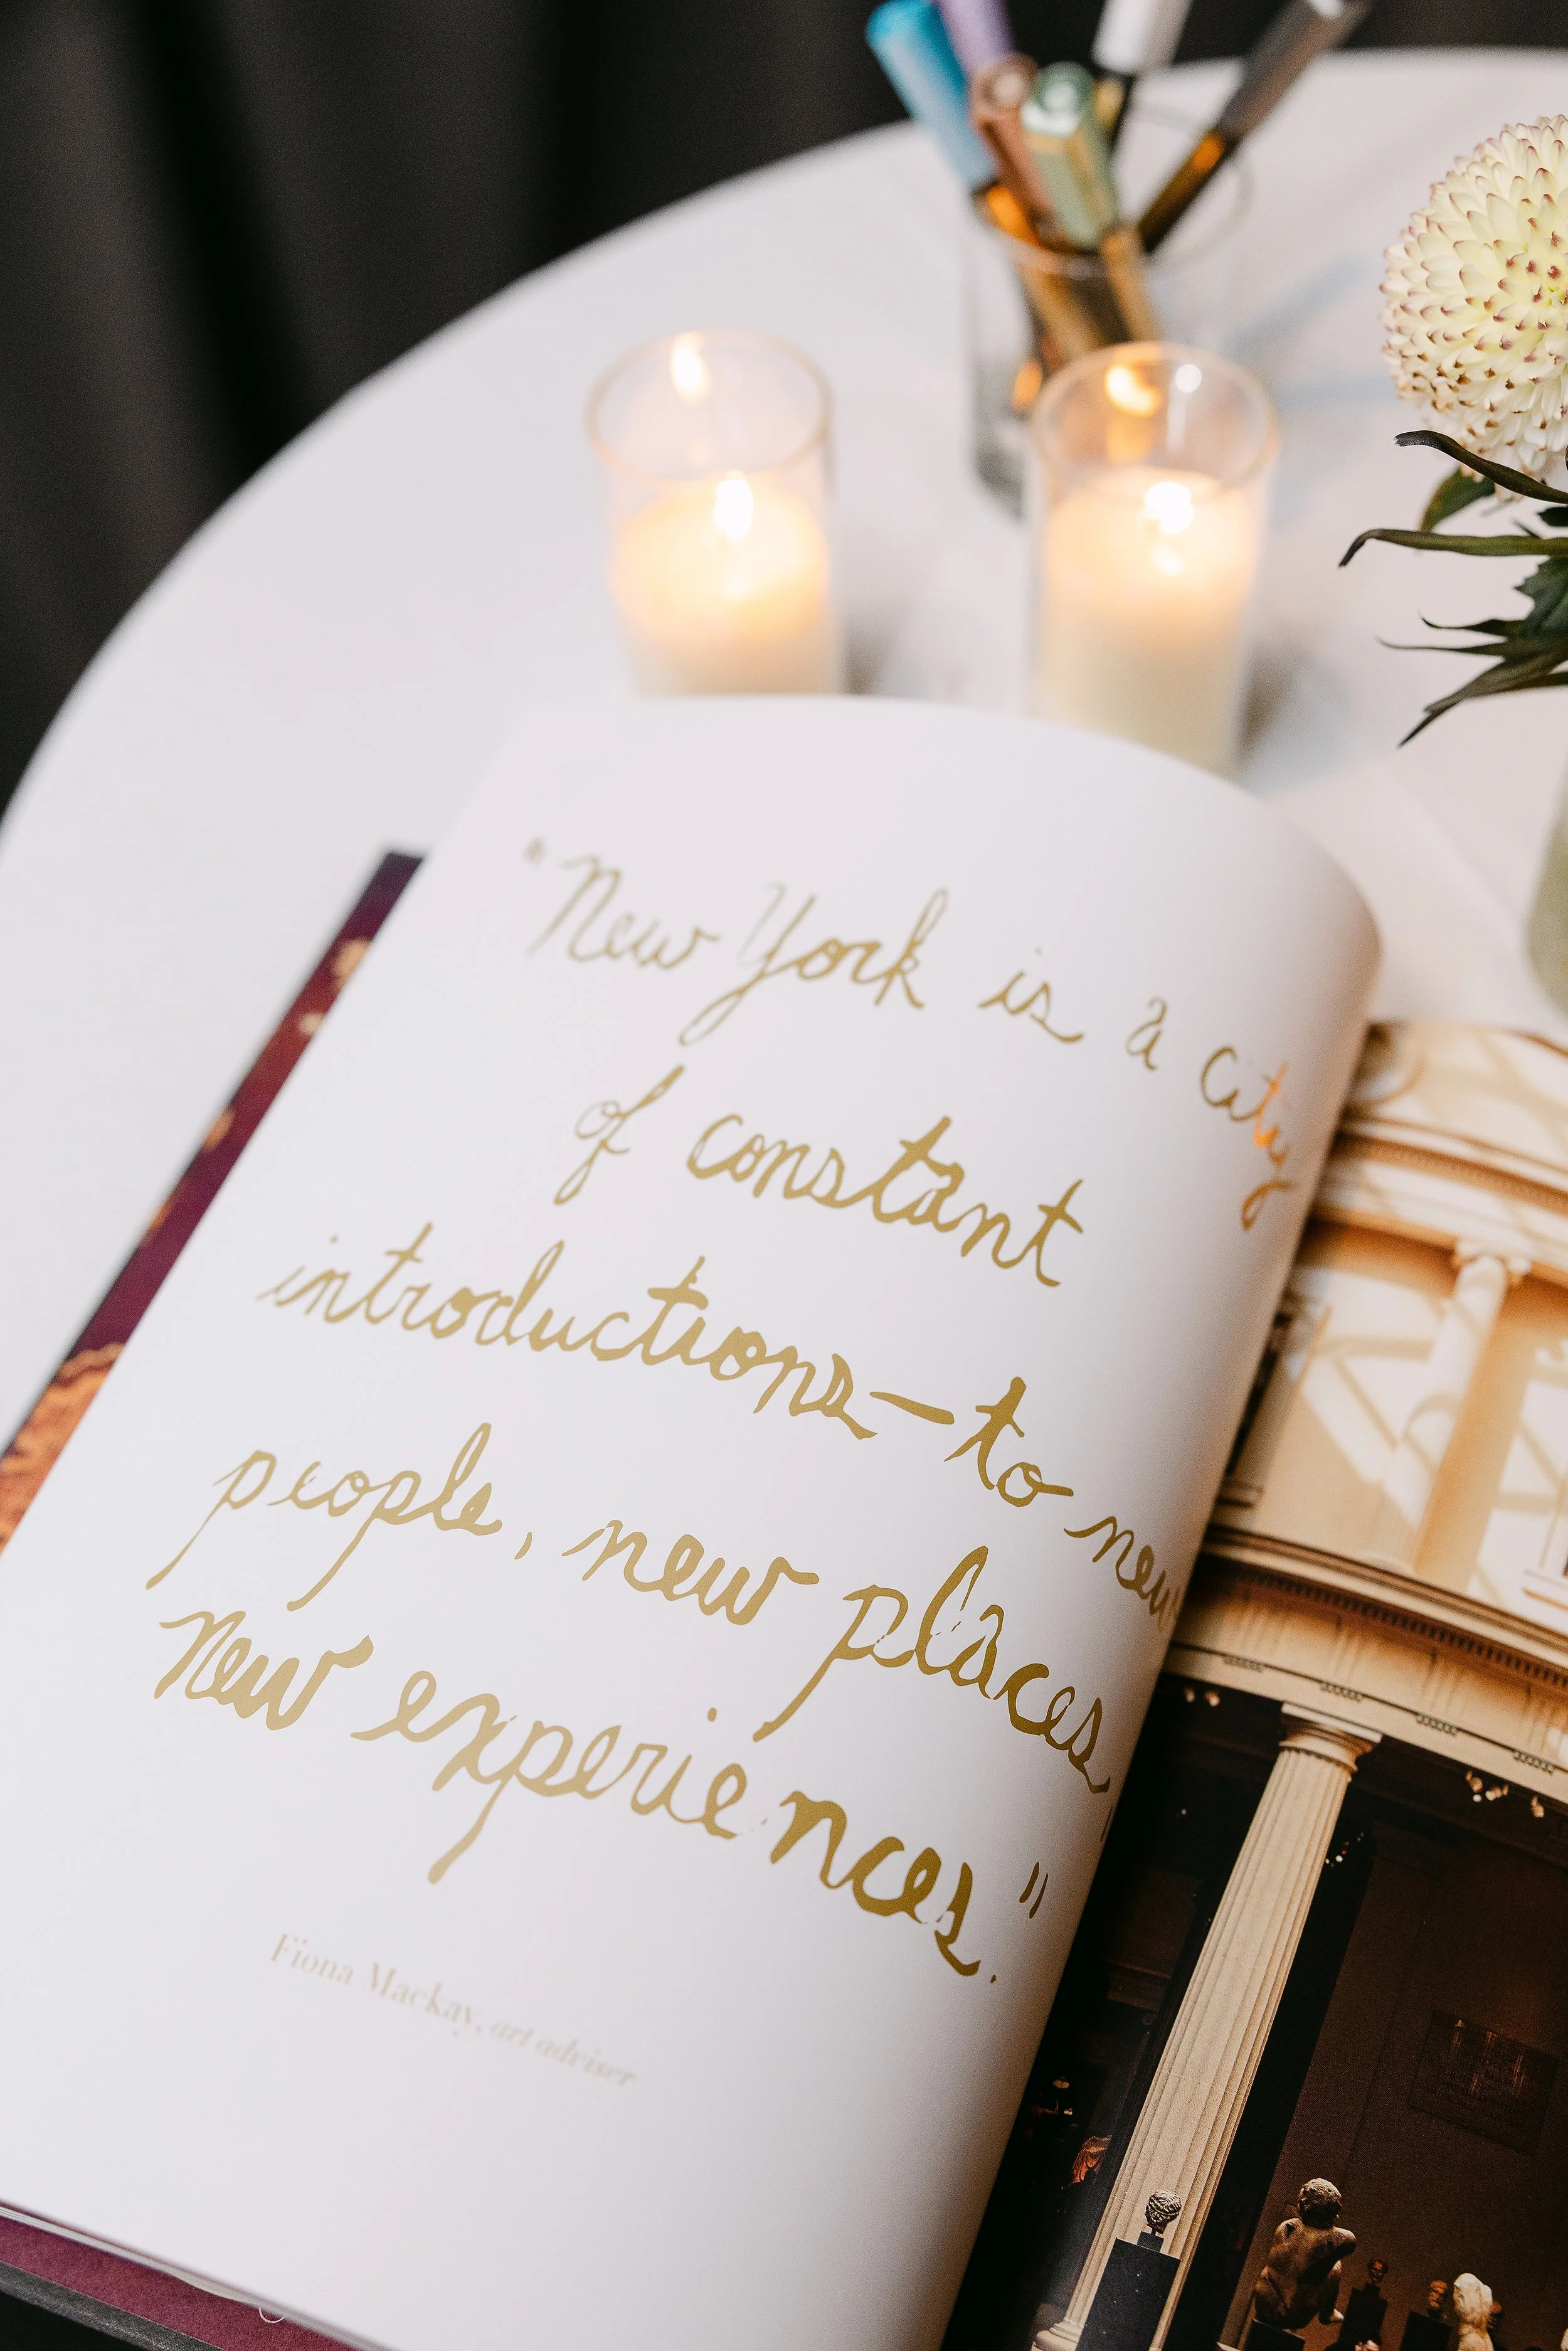 "New York is a city
of constant
introductions—to new
people, new places,
new experiences."
Fiona Mackay, art adviser